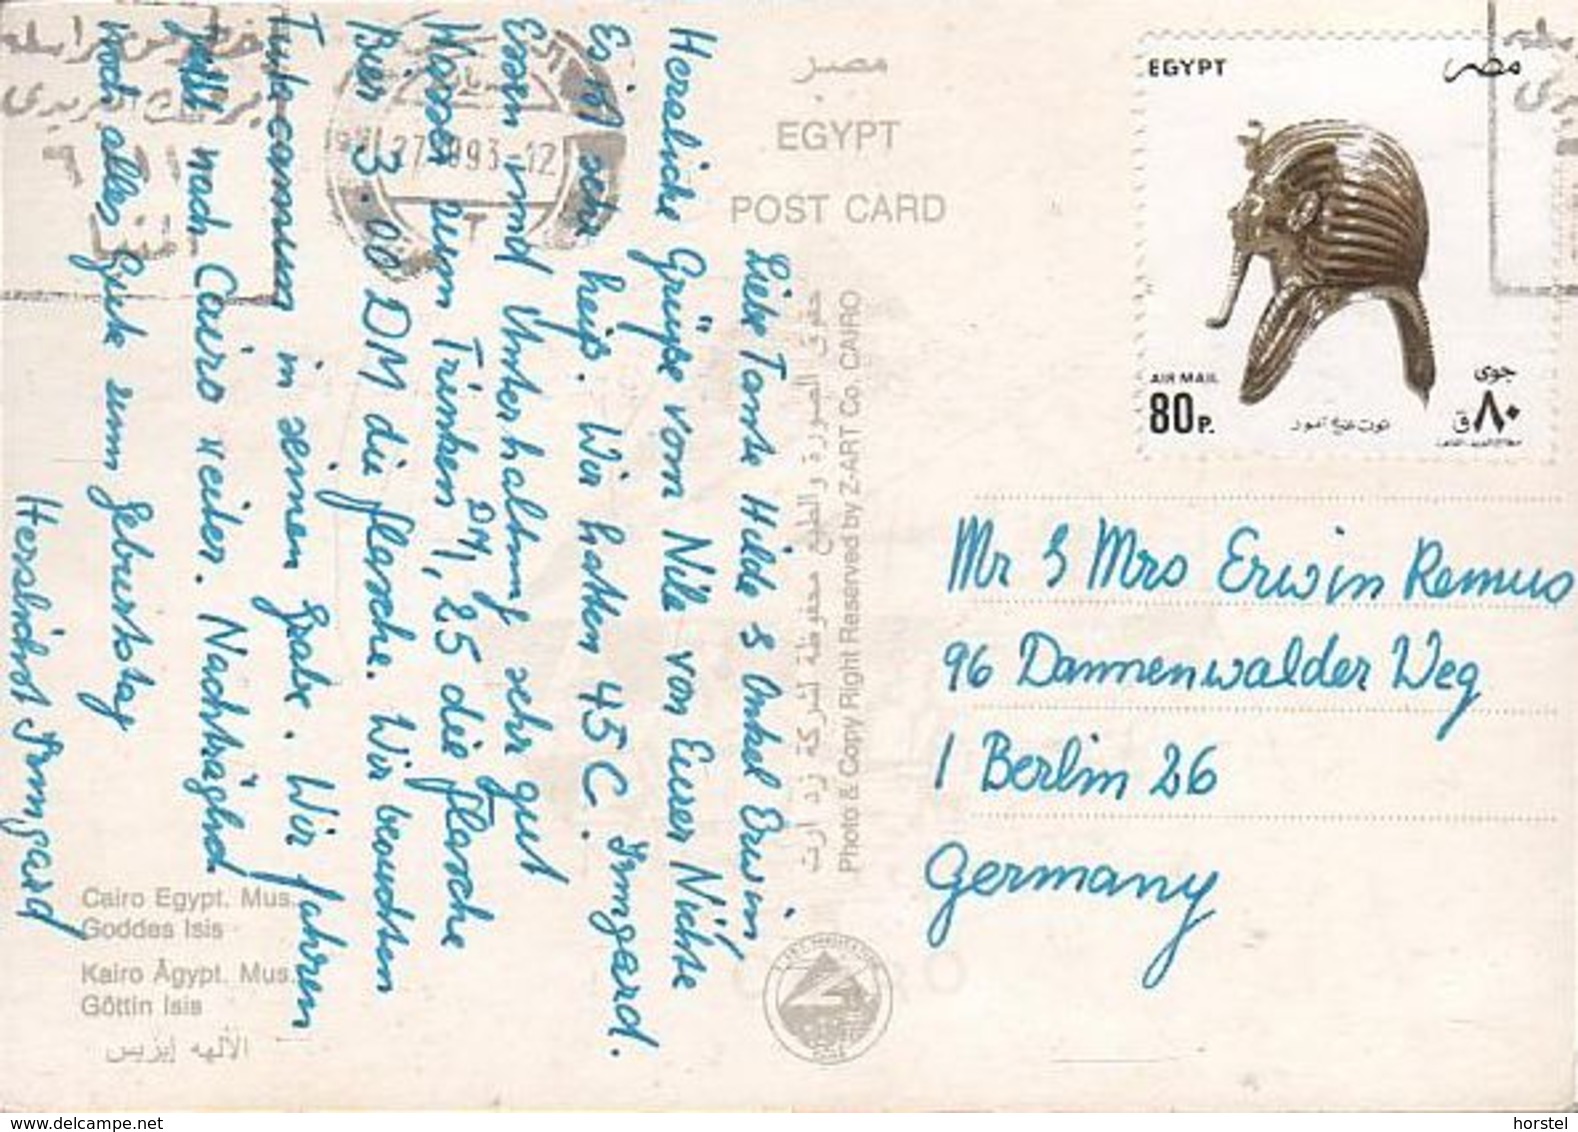 مصر
EGYPT
POST CARD
EGYPT
مصر
AIR MAIL
جوى
80 P.
٨٠ ق
توت عنخ آمون
27 993 12
Liebe Tante Hilde & Onkel Erwin
Herzliche Grüße vom Nile von Eurer Nichte
Irmgard.
Es ist sehr heiß. Wir hatten 45 C.
Essen und Unterhaltung sehr gut
Wasser zum Trinken DM 1,25 die Flasche
Bier 3.00 DM die Flasche. Wir besuchten
Tutecamun in seinen Grabe. Wir fahren
jetzt nach Cairo weiter. Nachträglich
noch alles Gute zum Geburtstag
Herzlichst Irmgard
حقوق الصورة والطبع محفوظة لشركة زد ارت
Photo & Copy Right Reserved by Z-ART Co. CAIRO
Mr & Mrs Erwin Remus
96 Dannenwalder Weg
1 Berlin 26
Germany
Cairo Egypt. Mus.
Goddes Isis
Kairo Ägypt. Mus.
Göttin Isis
الألهه إيزيس
delcampe.net
horstel